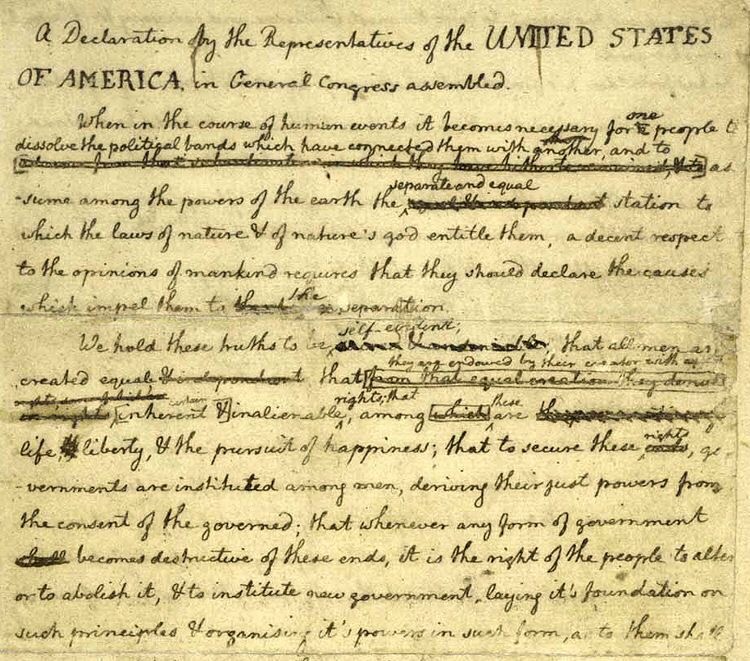 A Declaration by the Representatives of the UNITED STATES
OF AMERICA, in General Congress assembled.
When in the course of human events it becomes necessary for one people to
dissolve the political bands which have connected them with another, and to
as
separate and equal
-sume among the powers of the earth the station to
which the laws of nature & of nature's god entitle them, a decent respect
to the opinions of mankind requires that they should declare the causes
the
which impel them to separation.
self-evident;
We hold these truths to be that all men are
they are endowed by their creator with
created equal & independant that from that equal creation they derive
rights; that
certain
inherent & inalienable, among which these are
life, liberty, & the pursuit of happiness; that to secure these rights, go-
-vernments are instituted among men, deriving their just powers from
the consent of the governed; that whenever any form of government
shall becomes destructive of these ends, it is the right of the people to alter
or to abolish it, & to institute new government, laying it's foundation on
such principles & organising it's powers in such form, as to them shall